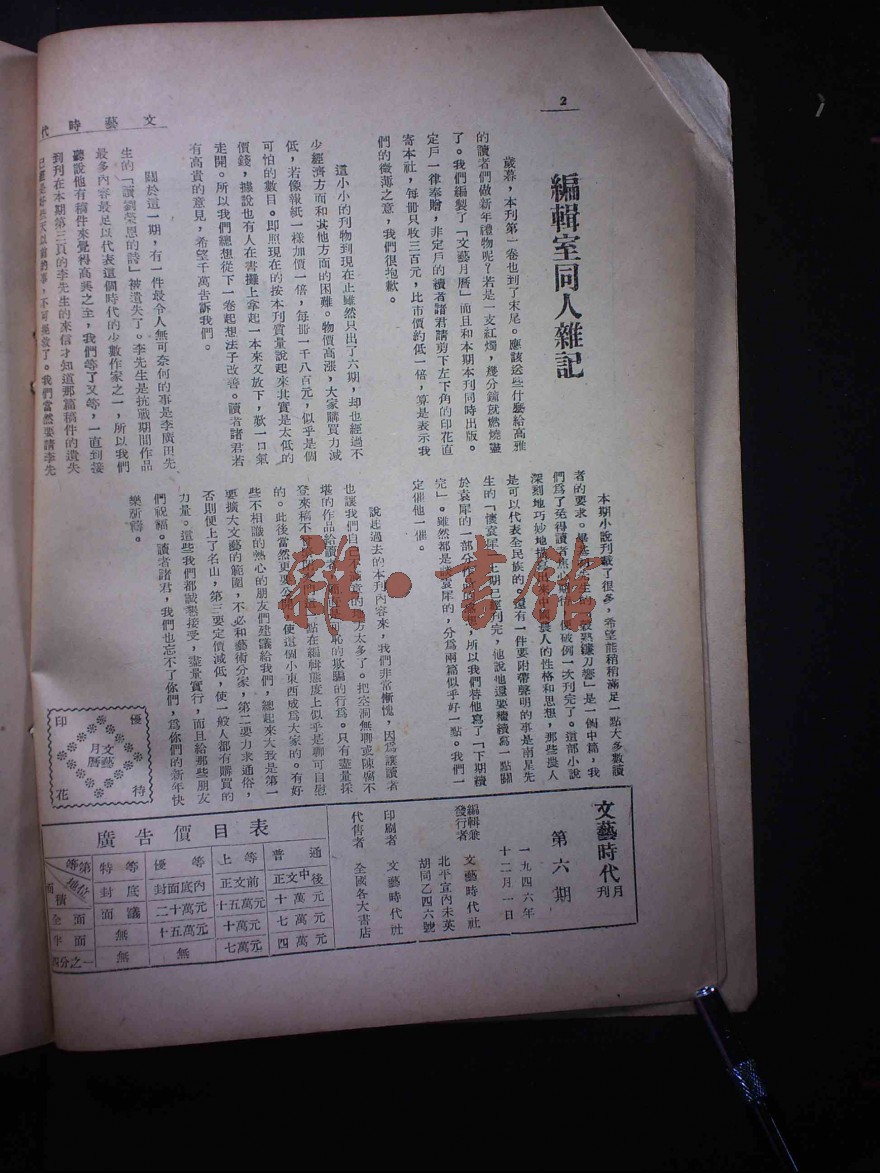 2
文藝時代
編輯室同人雜記
歲暮,本刊第一卷也到了末尾。應該送些什麼給高雅
的讀者們做新年禮物呢?若是一支紅燭,幾分鐘就燃燒盡
了。我們編製了「文藝月曆」而且和本期本刊同時出版。
定戶一律奉贈,非定戶的讀者諸君請剪下左下角的印花直
寄本社,每冊只收三百元,比市價約低一倍,算是表示我
們的微薄之意,我們很抱歉。
這小小的刊物到現在止雖然只出了六期,却也經過不
少經濟方面和其他方面的困難。物價高漲,大家購買力減
低,若像報紙一樣加價一倍,每冊一千八百元,似乎是個
可怕的數目。即照現在的按本刊質量說起來其實是太低的
價錢,據說也有人在書攤上拿起一本來又放下,歎一口氣
走開。所以我們總想從下一卷起想法子改善。讀者諸君若
有高貴的意見,希望千萬告訴我們。
關於這一期,有一件最令人無可奈何的事是李廣田先
生的「讀劉榮恩的詩」被遺失了。李先生是抗戰期間作品
最多內容最足以代表這個時代的少數作家之一,所以我們
聽說他有稿件來覺得高興之至,我們等了又等,一直到接
到刊在本期第三頁的李先生的來信才知道那篇稿件的遺失
已經是好些天以前的事,不可挽救了。我們當然要請李先
本期小說刊載了很多,希望能稍稍滿足一點大多數讀
者的要求。畢基初先生的
刀響」是一個中篇,我
們爲了免得讀者焦
破例一次刊完了。這部小說
深刻地巧妙地描
農人的性格和思想,那些農人
是可以代表全民族的
還有一件要附帶聲明的事是南星先
生的「懷袁犀」上期已經刊完,他說他還要繼續寫一點關
於袁犀的一部分作品的
,所以我們替他寫了「下期續
完」。雖然都是談袁犀的,分爲兩篇似乎好一點。我們一
定催他一催。
說起過去的本刊內容來,我們非常慚愧,因爲讓讀者
也讓我們自己不滿意的地方太多了。把空洞無聊或陳腐不
堪的作品給讀者
的欺騙的行爲。只有盡量採
登來稿不
點在編輯態度上似乎是聊可自慰
的。此後當然更要公
使這個小東西成爲大家的。有好
些不相識的熱心的朋友們建議給我們,總起來大致是第一
要擴大文藝的範圍,不必和藝術分家,第二要力求通俗,
否則便上了名山,第三要定價減低,使一般人都有購買的
力量。這些我們都誠懇接受,盡量實行,而且給那些朋友
們祝福。讀者諸君,我們也忘不了你們,爲你們的新年快
樂祈禱。
優待
印花
文藝
月曆
文藝時代月刊
第六期
一九四六年
十二月一日
編輯兼發行者 文藝時代社
北平宣內未英
胡同乙四六號
印刷者 文藝時代社
代售者 全國各大書店
廣告價目表
等第 地位 面積 特等 優等 上等 普通
封底 封面底內 正文前 正文中後
全面 面議 二十萬元 十五萬元 十萬元
半面 無 十五萬元 十萬元 七萬元
四分之一 無 無 七萬元 四萬元
雜·書館